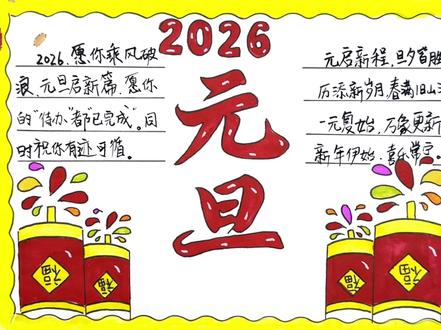 2026
元旦
2026.愿你乘风破
浪、元旦启新篇、愿你
的“待办”都“已完成”。同
时祝你有迹可循。
元启新程、旦夕皆
历添新岁月、春满旧山
一元复始、万象更新
新年伊始、喜乐常
福
福
福
福